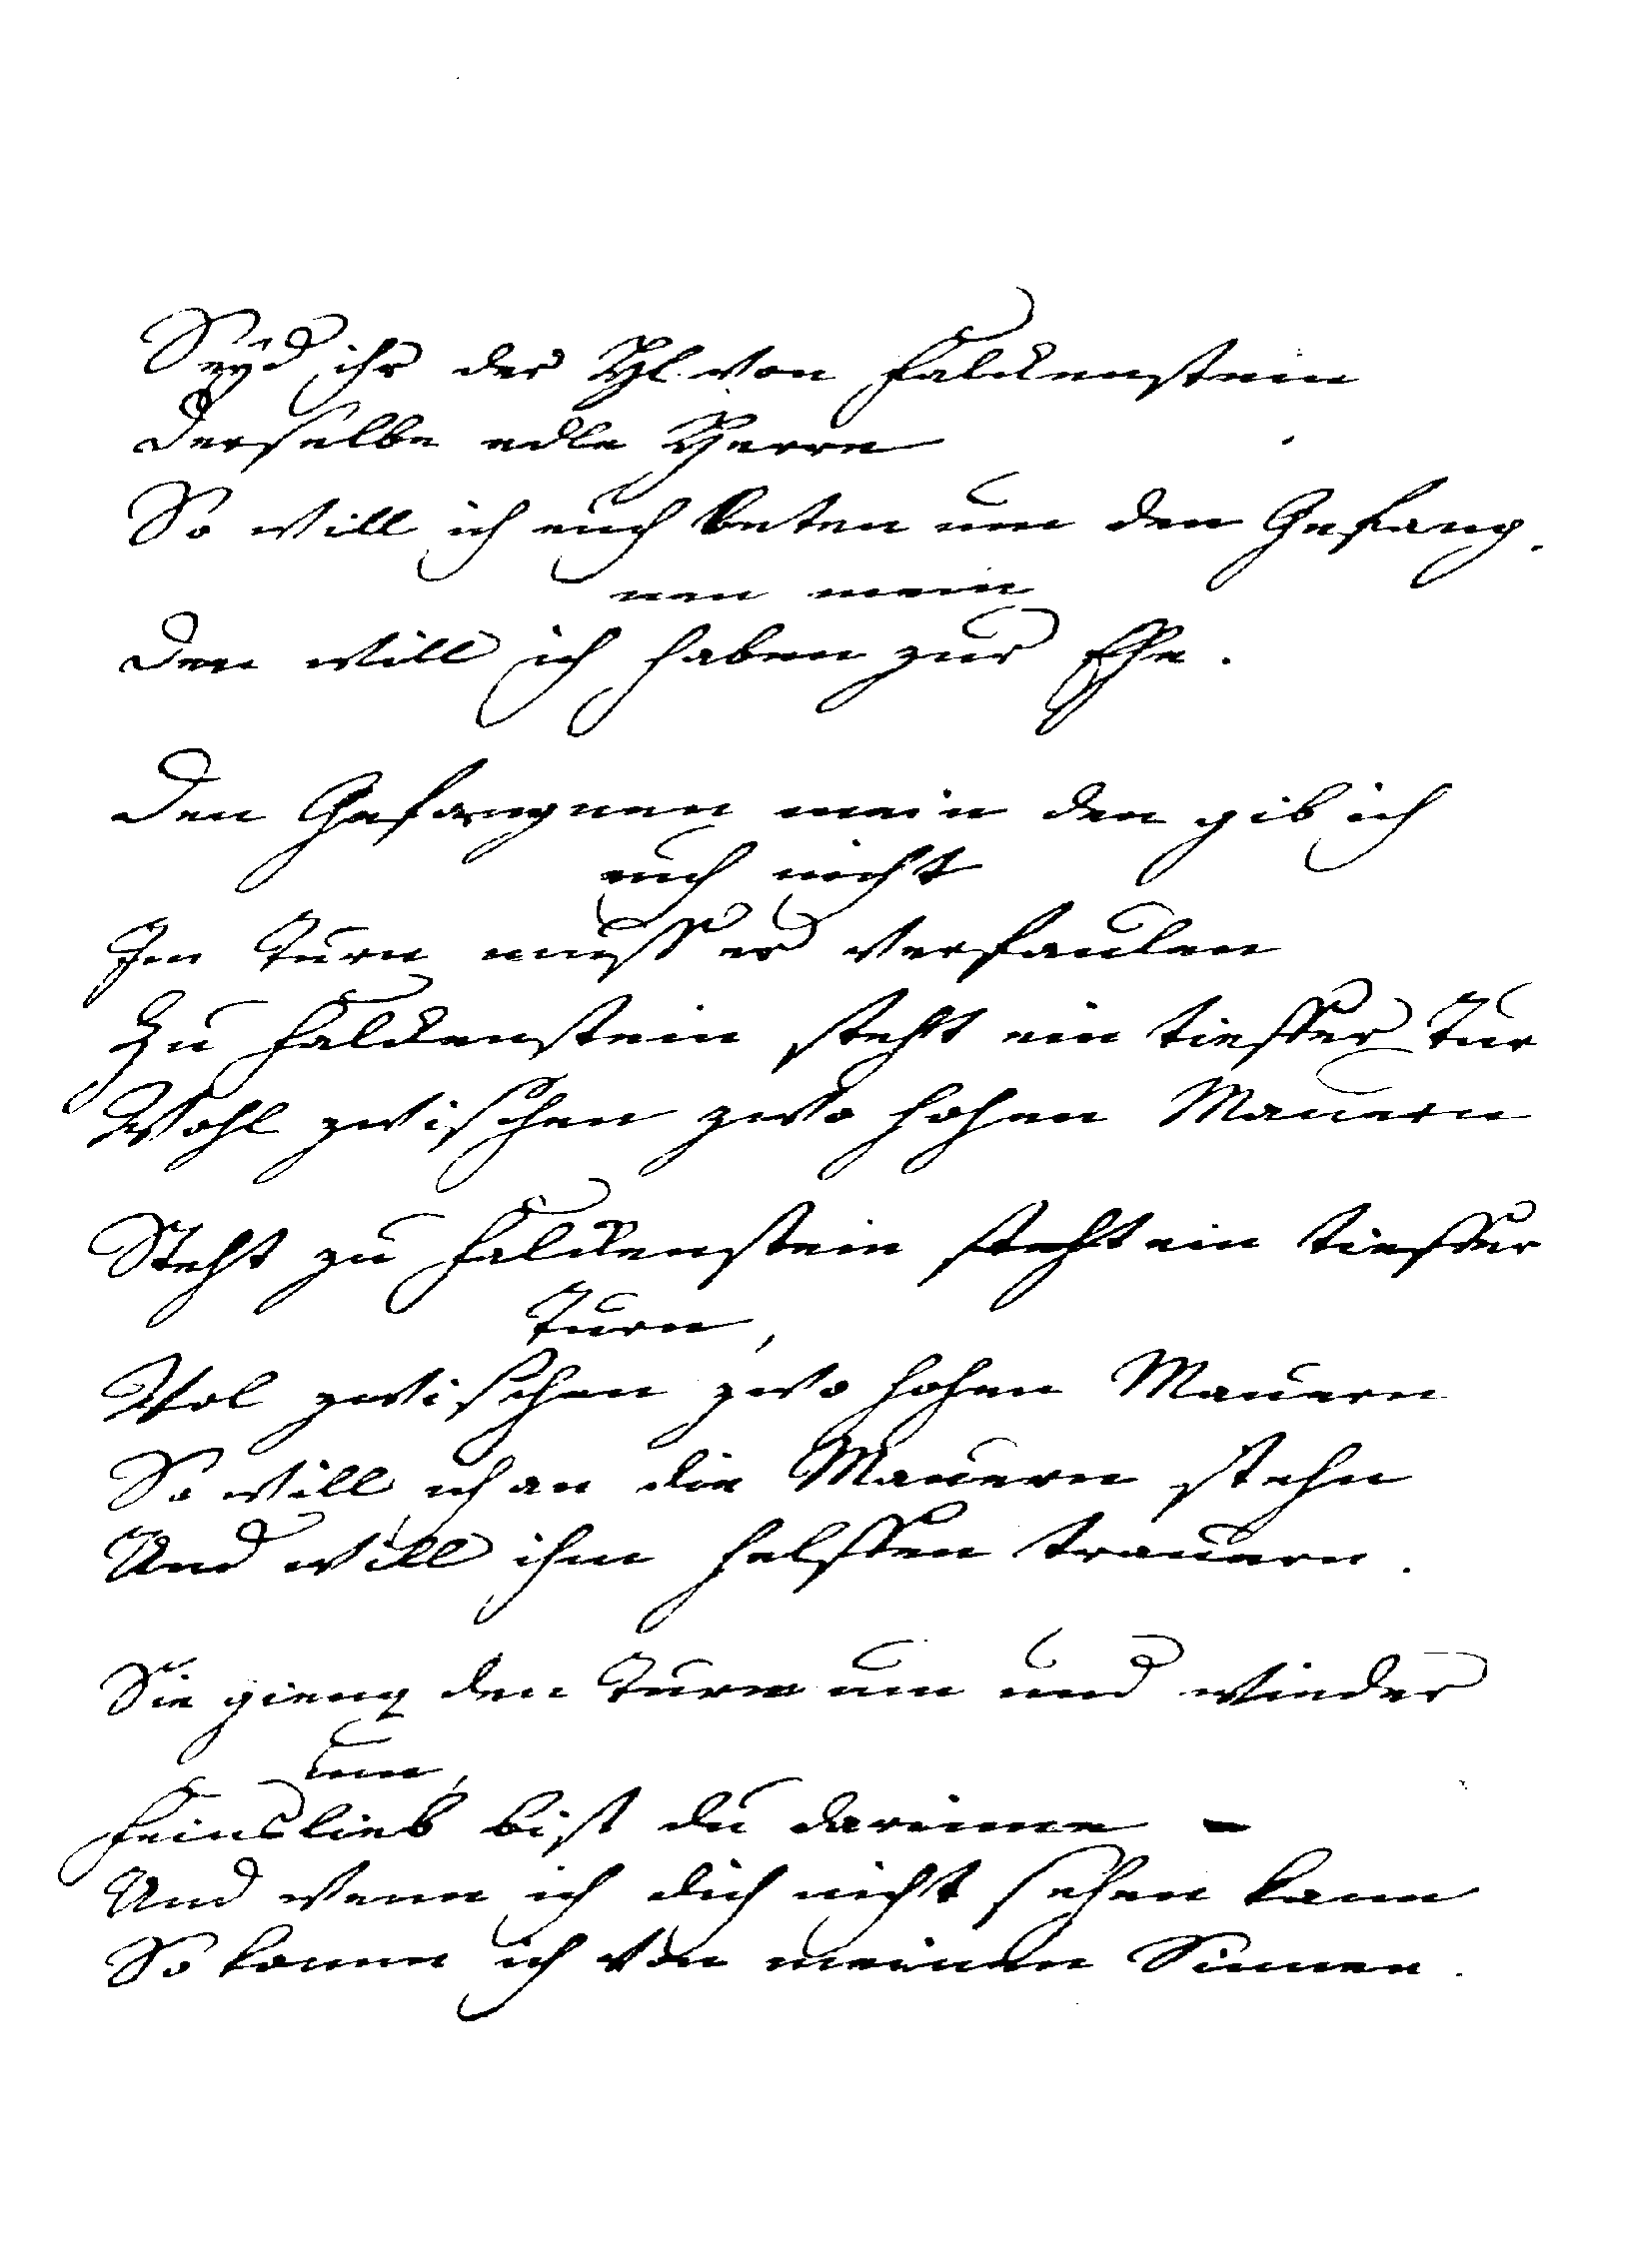 Seyd ihr der H. von Falckenstein
Derselbe edle Herre
So will ich euch beten um den Gefang.
nen mein
Den will ich haben zur Ehe.
Den Gefangnen mein den gib ich
euch nicht
Im Turn muss er verfaulen
Zu Falckenstein steht ein tieffer Tur
Wohl zwischen zwo hohen Mauern
Steht zu Falckenstein steht ein tieffer
Turn,
Wol zwischen zwo hohen Mauern
So will ich an die Mauern stehn
Und will ihm helffen trauern.
Sie gieng den Turn um und wieder
um,
Feinslieb bist du darinne -
Und wenn ich dich nicht sehen kann
So komm ich von meinen Sinnen.